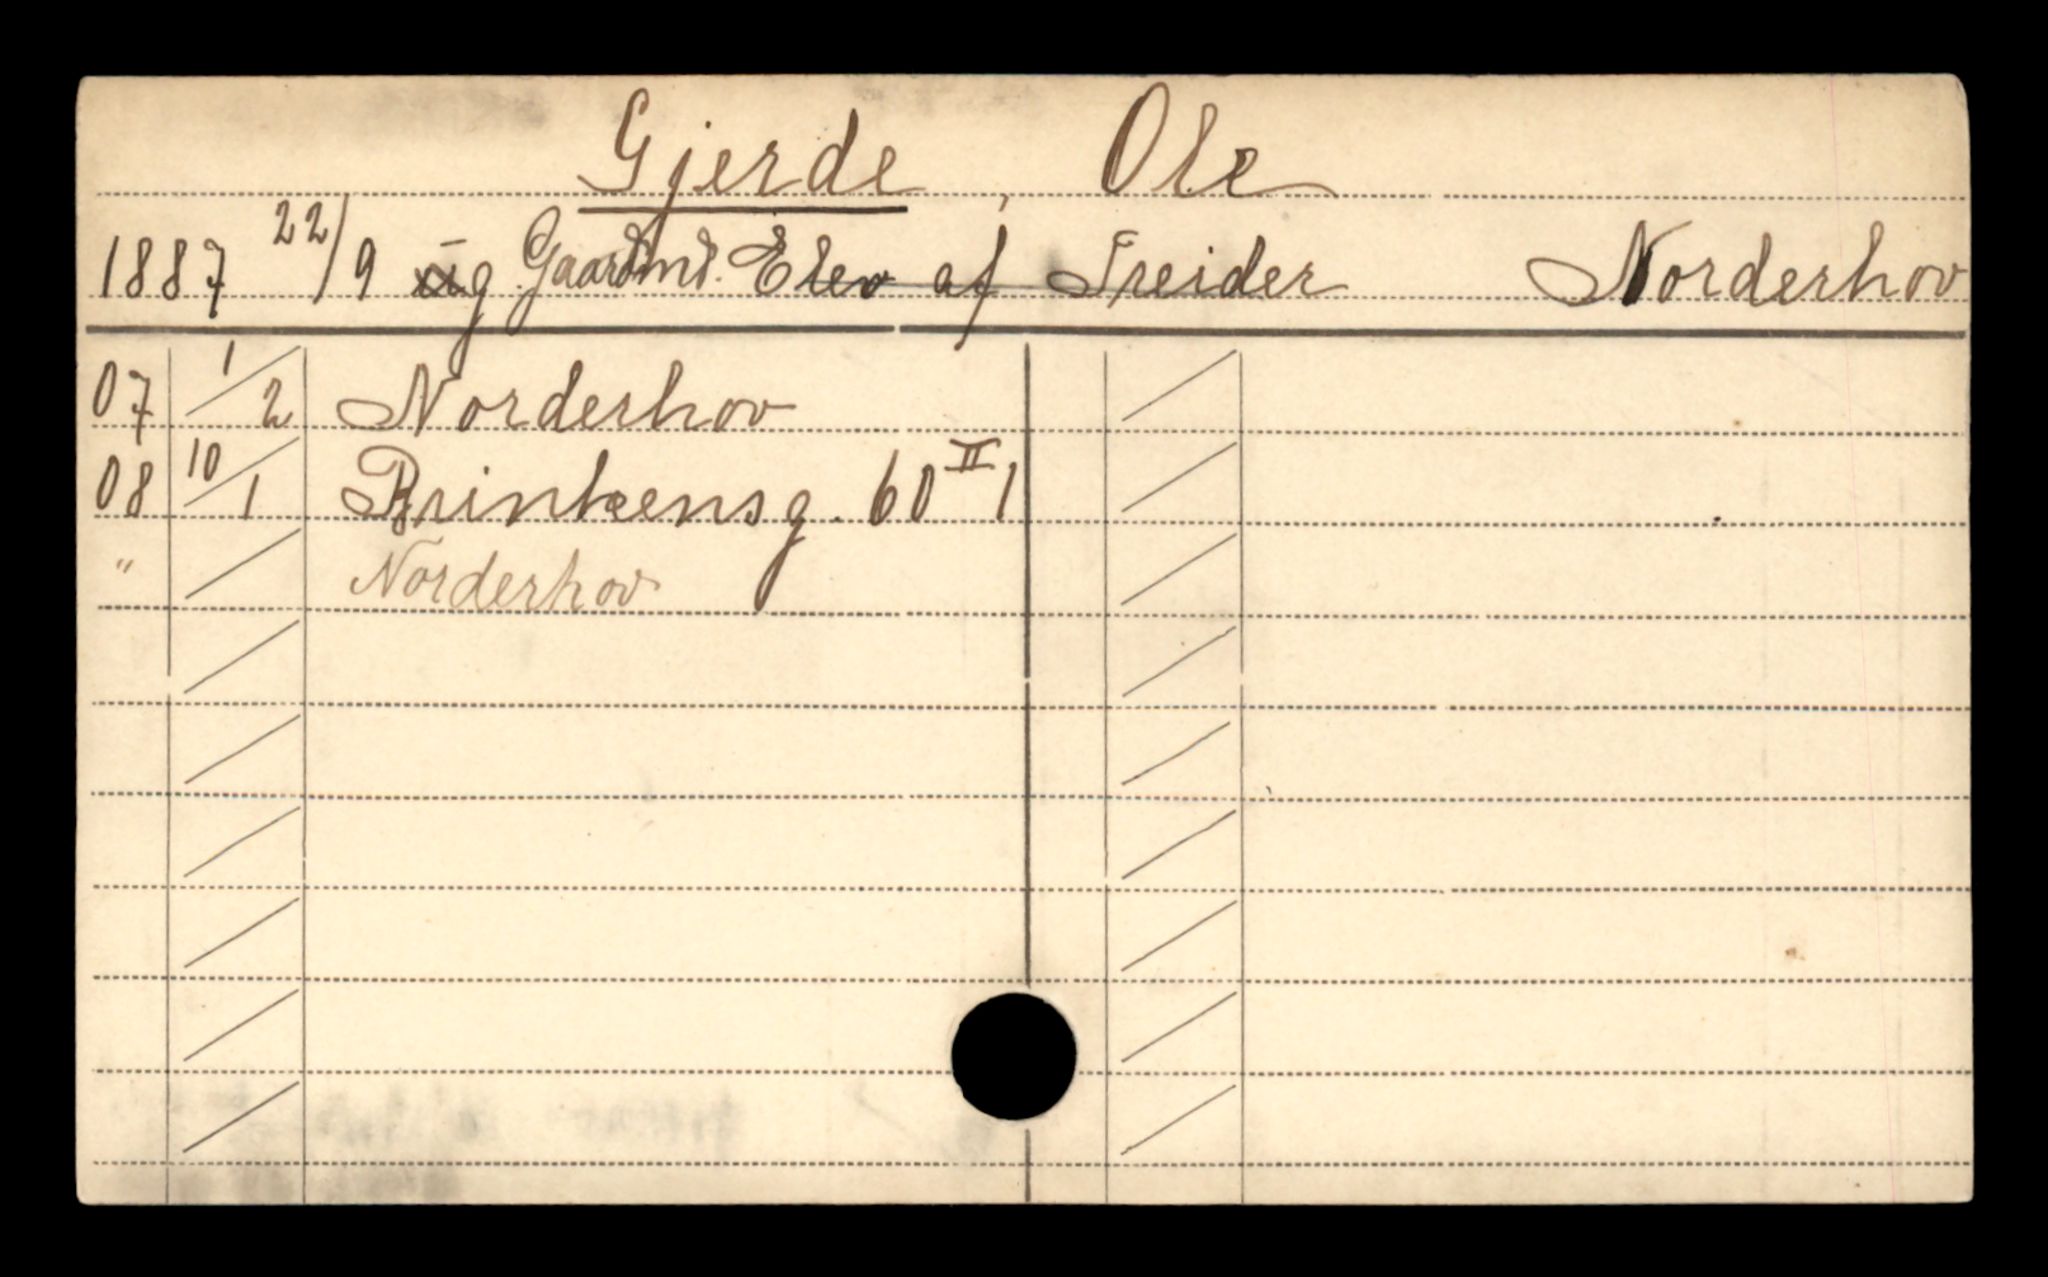 Gjerde, Ole
1887 22/9 ug Gaardmd. Elev af Treider Norderhov
07 1/2 Norderhov
08 10/1 Brinkensg. 60 II 1
" Norderhov